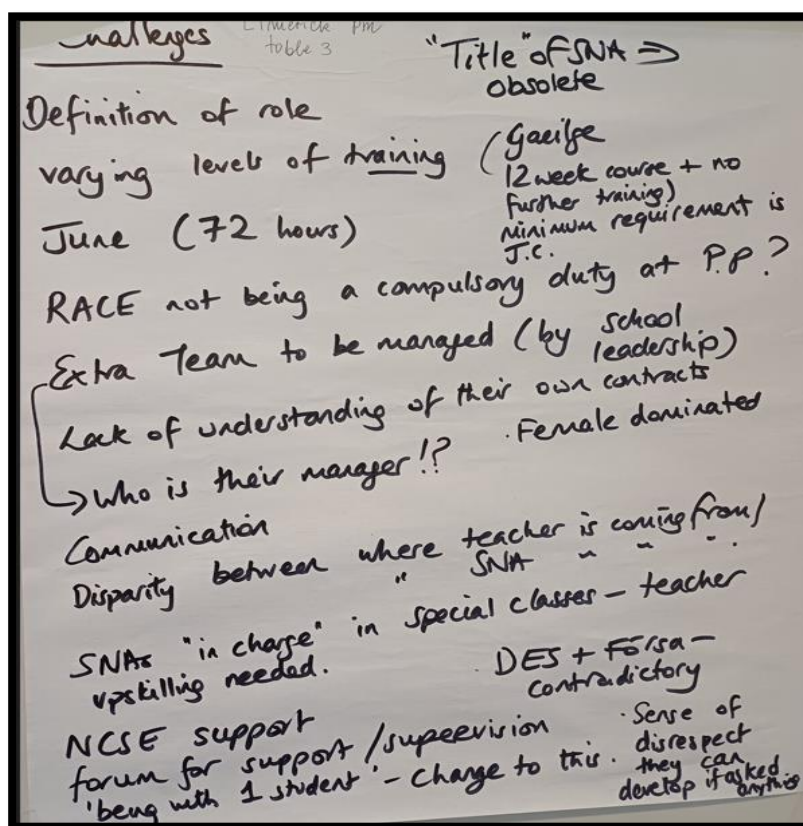 Challenges
Limerick pm
table 3
"Title" of SNA ⇒
obsolete
Definition of role
varying levels of training (Gaeilge
12 week course + no
further training)
minimum requirement is
J.C.
June (72 hours)
RACE not being a compulsory duty at P.P?
Extra Team to be managed (by school
leadership)
Lack of understanding of their own contracts
→ Who is their manager!?
. Female dominated
Communication
Disparity between where teacher is coming from/
" SNA " " ".
SNAs "in charge" in special classes - teacher
upskilling needed.
. DES + Fórsa -
contradictory
NCSE support
forum for support / supervision
'being with 1 student' - change to this.
. Sense of
disrespect
they can
develop if asked
anything